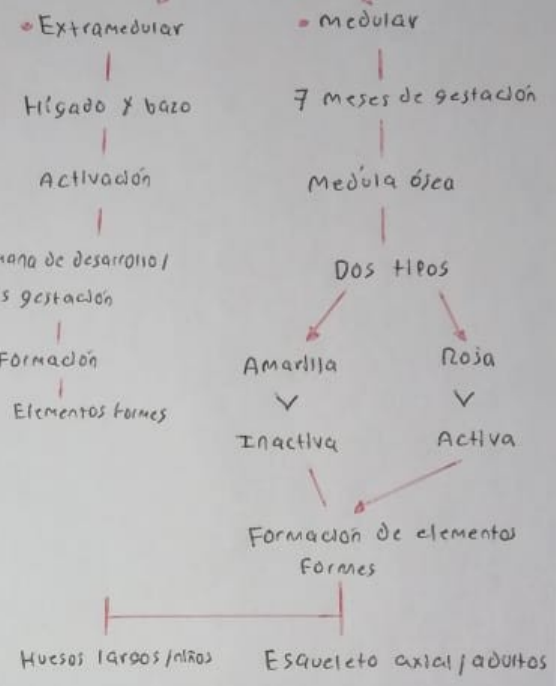 • Extramedular
Hígado y bazo
Activación
de desarrollo/
gestación
Formación
Elementos formes
• medular
7 meses de gestación
Medúla ósea
Dos tipos
Amarilla
Inactiva
Roja
Activa
Formación de elementos
formes
Huesos largos/niños
Esqueleto axial/adultos